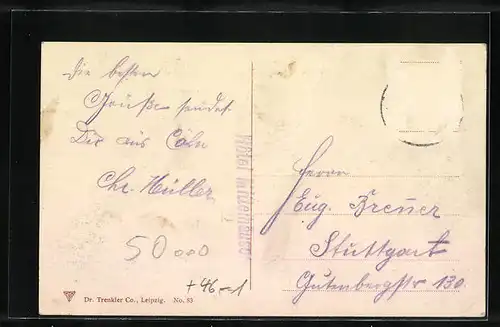 Die besten
Grüße sendet
Dir aus Cöln
Chr. Müller
50000
+46,-1
Dr. Trenkler Co., Leipzig. No. 83
Hôtel
Herrn
Eug. Breuer
Stuttgart
Gutenbergstr 130.